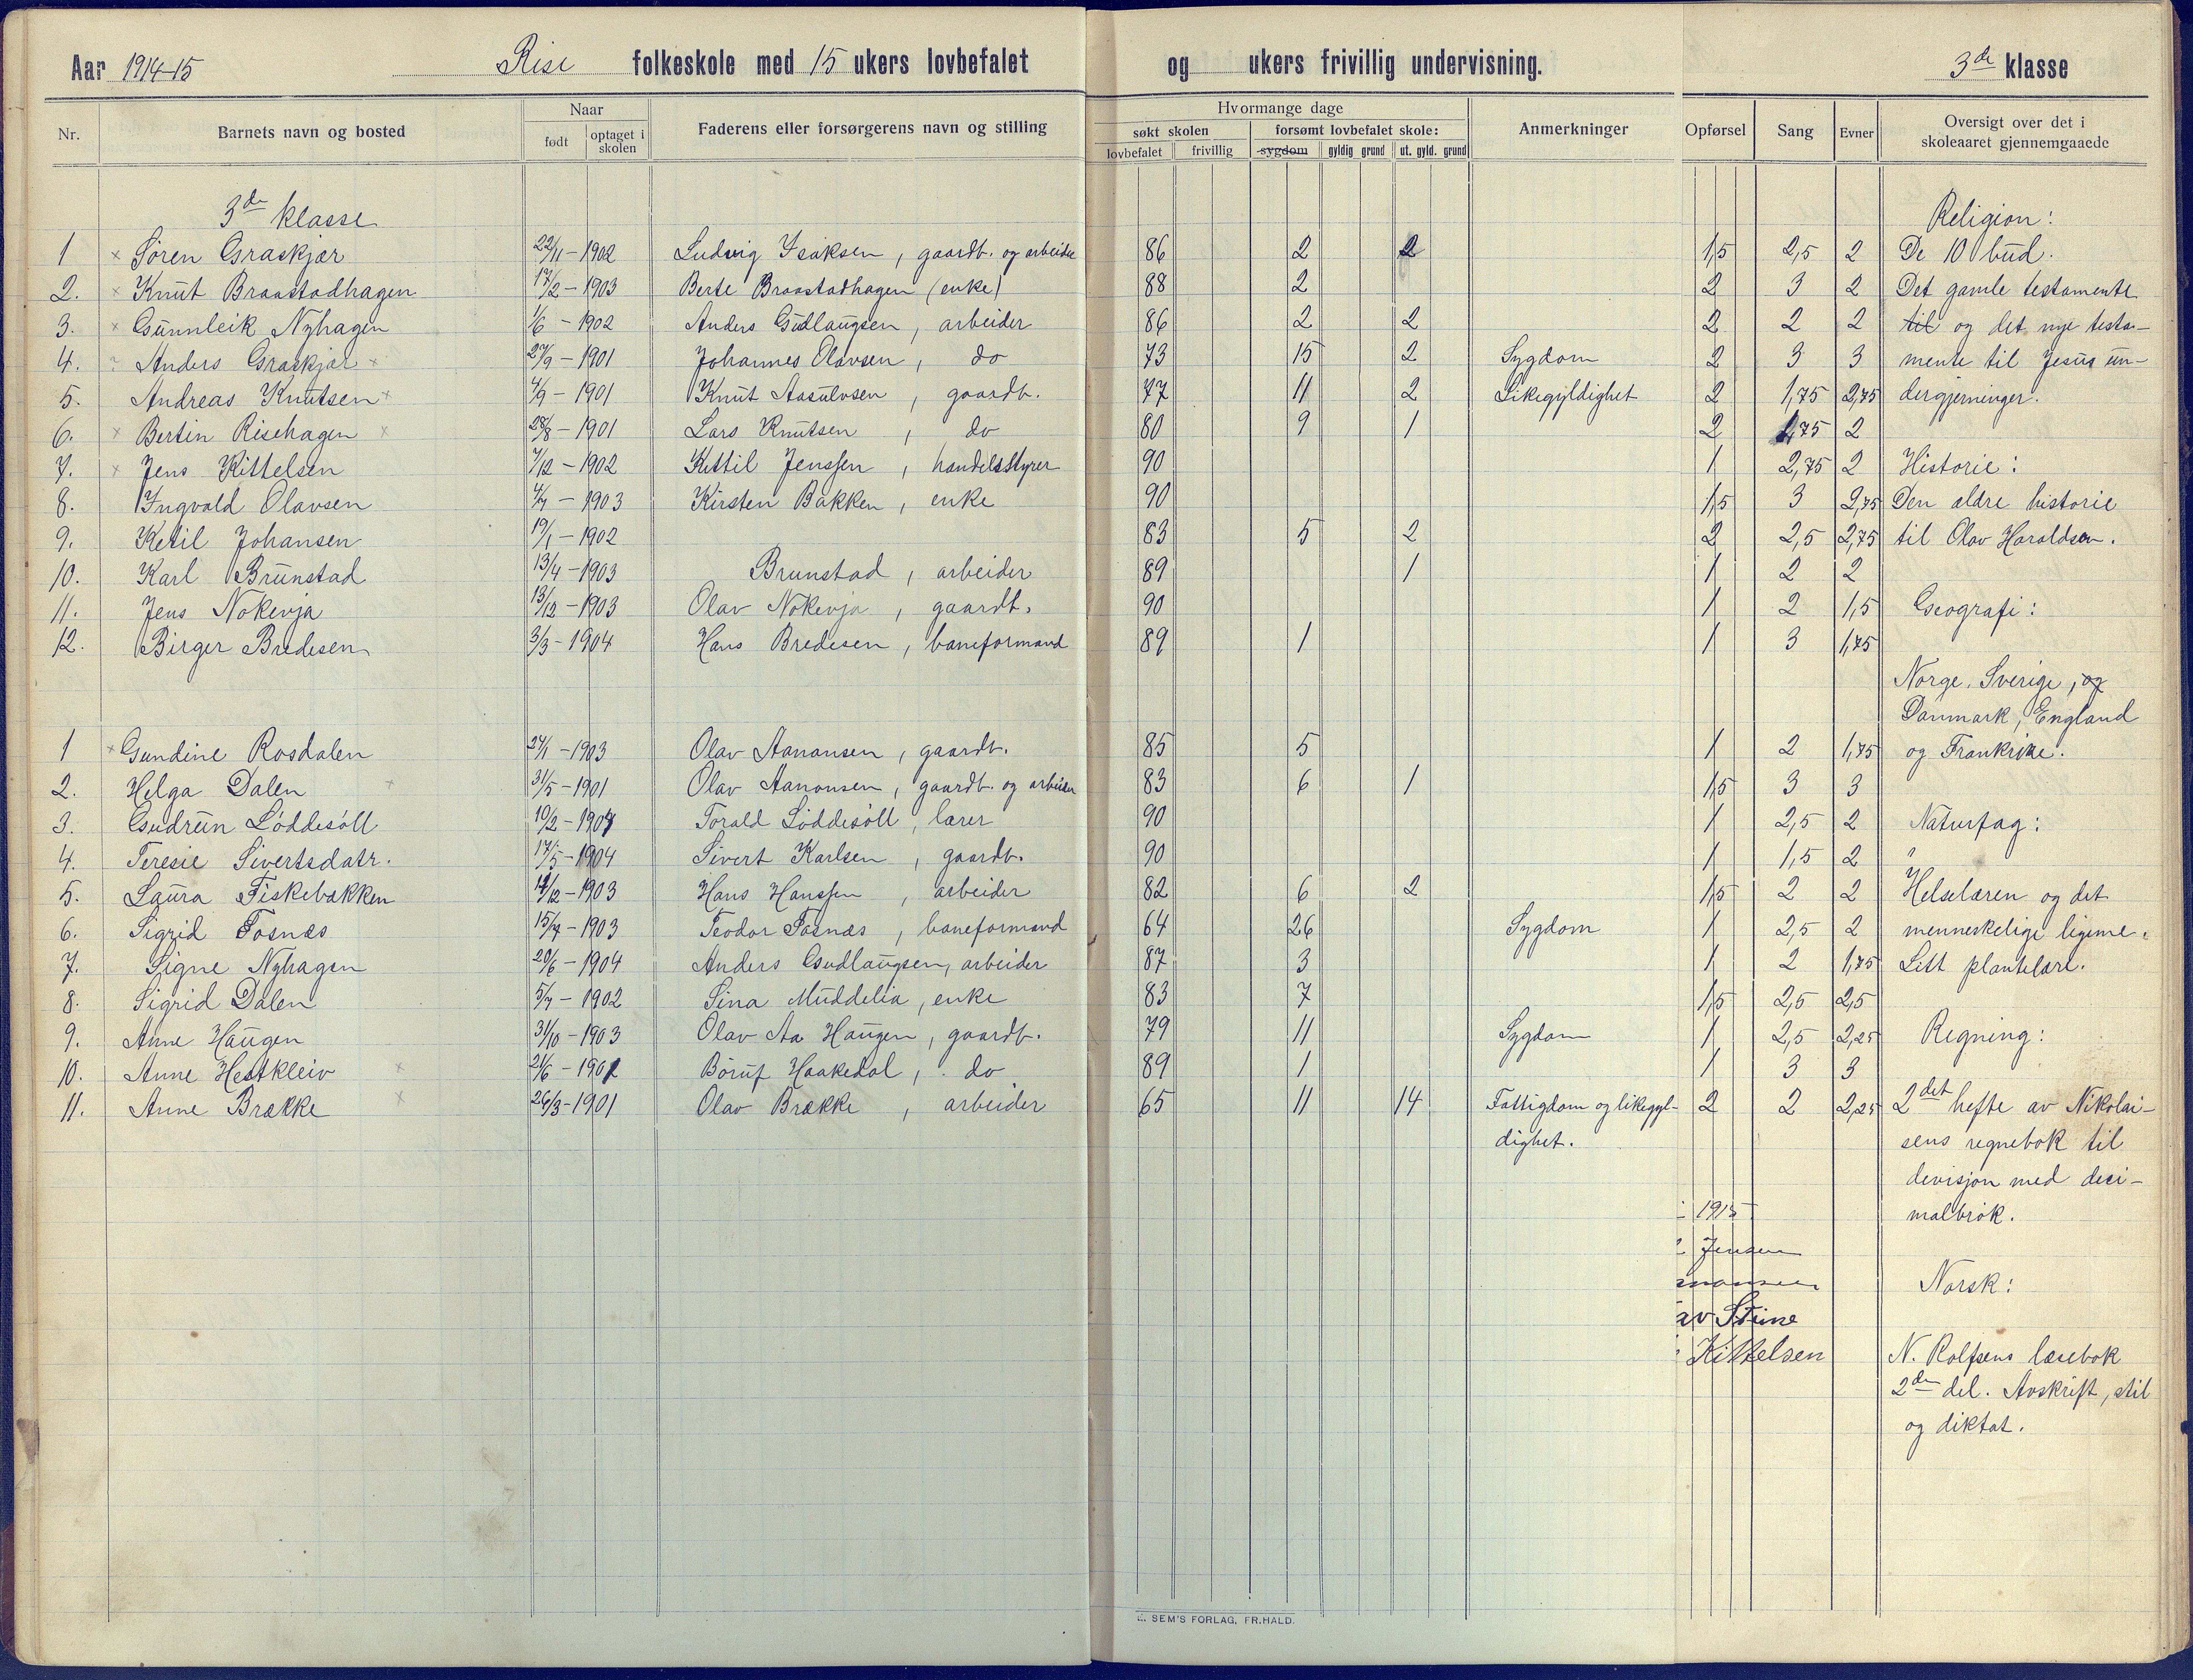 Aar 1914-15 Rise folkeskole med 15 ukers lovbefalet og ukers frivillig undervisning. 3de klasse
Nr. Barnets navn og bosted Naar født optaget i skolen Faderens eller forsørgerens navn og stilling Hvormange dage søkt skolen lovbefalet frivillig forsømt lovbefalet skole: sygdom gyldig grund ut. gyld. grund Anmerkninger Opførsel Sang Evner Oversigt over det i skoleaaret gjennemgaaede
3de klasse Religion:
1 × Søren Graskjær 22/11-1902 Ludvig Isaksen, gaardb. og arbeider 86 2 2 1,5 2,5 2 De 10 bud.
2. × Knut Braastadhagen 17/2-1903 Berte Braastadhagen (enke) 88 2 2 3 2 Det gamle testamente
3. × Gunnleik Nyhagen 1/6-1902 Anders Gudlaugsen, arbeider 86 2 2 2 2 2 til og det nye testa-
4. Anders Graskjær × 27/9-1901 Johannes Olavsen, do 73 15 2 Sygdom 2 3 3 mente til Jesus un-
5. Andreas Knutsen × 4/9-1901 Knut Aasulvsen, gaardb. 77 11 2 Likegyldighet 2 1,75 2,75 dergjerninger.
6. × Bertin Risehagen × 28/8-1901 Lars Knutsen, do 80 9 1 2 1,75 2
7. × Jens Kittelsen 7/12-1902 Kittil Jenssen, handelsstyrer 90 1 2,75 2 Historie:
8. Ingvald Olavsen 4/7-1903 Kirsten Bakken, enke 90 1,5 3 2,75 Den ældre historie
9. Ketil Johansen 19/1-1902 83 5 2 2 2,5 2,75 til Olav Haraldsøn.
10. Karl Brunstad 13/4-1903 Brunstad, arbeider 89 1 1 2 2
11. Jens Nokenja 13/12-1903 Olav Nokenja, gaardb. 90 1 2 1,5 Geografi:
12. Birger Bredesen 3/3-1904 Hans Bredesen, baneformand 89 1 1 3 1,75
Norge, Sverige, og
Danmark, England
1 × Gundine Rosdalen 24/1-1903 Olav Aanansen, gaardb. 85 5 1 2 1,75 og Frankrike.
2. Helga Dalen × 31/5-1901 Olav Aanonsen, gaardb. og arbeider 83 6 1 1,5 3 3
3. Gudrun Løddesøll 10/2-1904 Torald Løddesøll, lærer 90 1 2,5 2 Naturfag:
4. Teresie Sivertsdatr. 17/5-1904 Sivert Karlsen, gaardb. 90 1 1,5 2
5. Laura Fiskebækken 14/12-1903 Hans Hanssen, arbeider 82 6 2 1,5 2 2 Helselæren og det
6. Sigrid Fosnæs 15/7-1903 Teodor Fosnæs, baneformand 64 26 Sygdom 1 2,5 2 menneskelige legeme.
7. Signe Nyhagen 20/6-1904 Anders Gudlaugsen, arbeider 87 3 1 2 1,75 Litt plantelære.
8. Sigrid Dalen 5/7-1902 Sina Muddelia, enke 83 7 1,5 2,5 2,5
9. Anne Haugen 31/10-1903 Olav Aa Haugen, gaardb. 79 11 Sygdom 1 2,5 2,25 Regning:
10. Anne Hestkleiv × 21/6-1902 Børuf Haakedal, do 89 1 1 3 3
11. Anne Brække × 26/3-1901 Olav Brække, arbeider 65 11 14 Fattigdom og likegyl- 2 2 2,25 2det hefte av Nikolai-
dighet. sens regnebok til
devisjon med deci-
1915 malbrøk.
Jensen
Norsk:
av Stine
Kittelsen N. Rolfsens læsebok
2den del. Avskrift, stil
og diktat.
E. SEM'S FORLAG, FR.HALD.